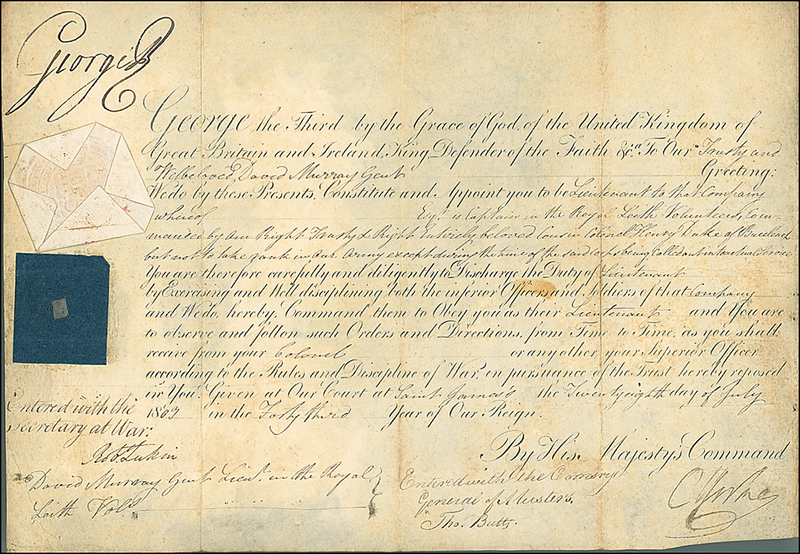 George R
George the Third by the Grace of God, of the United Kingdom of
Great Britain and Ireland, King, Defender of the Faith &c.a To Our Trusty and
Welbeloved David Murray Gent Greeting:
We do by these Presents, Constitute and Appoint you to be Lieutenant to that Company
whereof Esqr is Captain in the Royal Leith Volunteers, Com-
manded by Our Right Trusty & Right Entirely beloved Cousin Colonel Henry Duke of Buccleuch
but not to take rank in Our Army except during the time of the said Corps being called out into actual Service
You are therefore carefully and diligently to Discharge the Duty of Lieutenant
by Exercising and Well disciplining both the inferior Officers and Soldiers of that Company
and We do hereby Command them to Obey you as their Lieutenant and you are
to observe and follow such Orders and Directions, from Time to Time, as you shall
receive from your Colonel or any other your Superior Officer
according to the Rules and Discipline of War, in pursuance of the Trust hereby reposed
in You. Given at Our Court at Saint James's the Twenty eighth day of July
1803 in the Forty third Year of Our Reign.
Entered with the
Secretary at War:
Robt Lukin
By His Majesty's Command
David Murray Gent Lieut. in the Royal
Leith Vols
Entered with the Comsry
General of Musters,
Tho. Butts
C Yorke